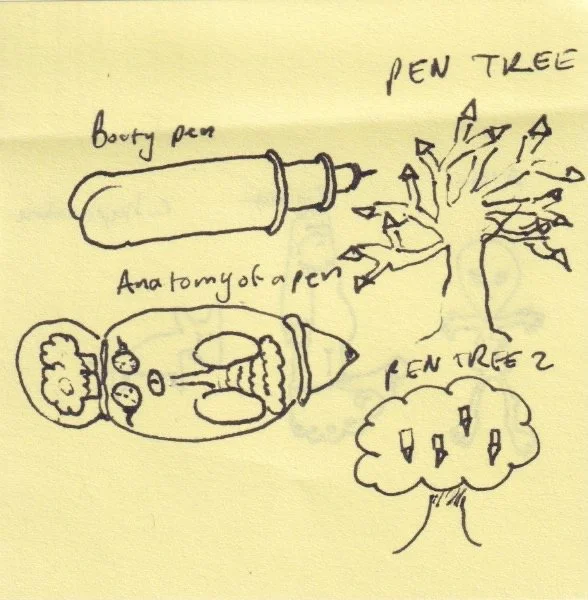 PEN TREE
Booty pen
Anatomy of a pen
PEN TREE 2